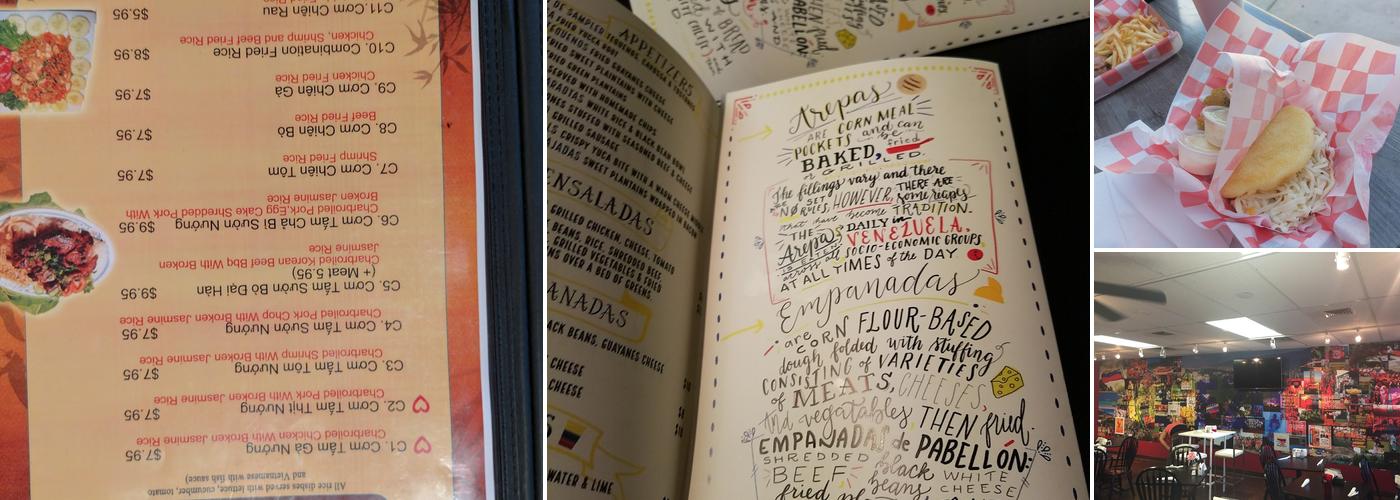 All rice dishes served with lettuce, cucumber, tomato
and Vietnamese with fish sauce)
C1. Cơm Tấm Gà Nướng $7.95
Charbroiled Chicken With Broken Jasmine Rice
C2. Cơm Tấm Thịt Nướng $7.95
Charbroiled Pork With Broken Jasmine Rice
C3. Cơm Tấm Tôm Nướng $7.95
Charbroiled Shrimp With Broken Jasmine Rice
C4. Cơm Tấm Sườn Nướng $7.95
Charbroiled Pork Chop With Broken Jasmine Rice
C5. Cơm Tấm Sườn Bò Đại Hàn $9.95
(+ Meat 5.95)
Charbroiled Korean Beef Bbq With Broken
Jasmine Rice
C6. Cơm Tấm Bì Chả Sườn Nướng $9.95
Charbroiled Pork,Egg Cake Shredded Pork With
Broken Jasmine Rice
C7. Cơm Chiên Tôm $7.95
Shrimp Fried
C8. Cơm Chiên Bò $7.95
Beef Fried Rice
C9. Cơm Chiên Gà $7.95
Chicken Fried Rice
C10. Combination Fried Rice $8.95
Chicken, Shrimp and Beef Fried Rice
C11. Cơm Chiên Rau $5.95
APPETIZERS
DE SAMPLER TEQUENOS,
FRIED YUCA BOUND
FRIED GUAYANES CHEESE
FRIED GREEN PLANTAINS WITH CHEESE
SERVED WITH HOMEMADE CHIPS
WHITE RICE & BLACK BEAN BOWL
STUFFED WITH SEASONED BEEF & CHEESE
GRILLED SAUSAGE
CRISPY YUCA BITE WITH A WARM CHEESE
SWEET PLANTAINS WRAPPED IN BACON
ENSALADAS
GRILLED CHICKEN, CHEESE, TOMATO
BEANS, RICE, SHREDDED BEEF
GRILLED VEGETABLES &
OVER A BED OF GREENS.
ANADAS
ACK BEANS, GUAYANES CHEESE
CHEESE
CHEESE
WATER & LIME
PABELLÓN
Arepas
ARE CORN MEAL
POCKETS and can
be
BAKED, fried
or GRILLED.
The fillings vary and there
are SET
NO RULES, HOWEVER, THERE ARE
some recipes
that have become TRADITION.
THE
Arepa DAILY in
VENEZUELA,
across all SOCIO-ECONOMIC GROUPS
AT ALL TIMES of the DAY.
Empanadas
are FLOUR-BASED
CORN
dough folded with stuffing
CONSISTING of VARIETIES
of MEATS, CHEESES,
And vegetables, THEN fried.
EMPANADAS de PABELLÓN:
SHREDDED black WHITE
BEEF beans CHEESE
fried